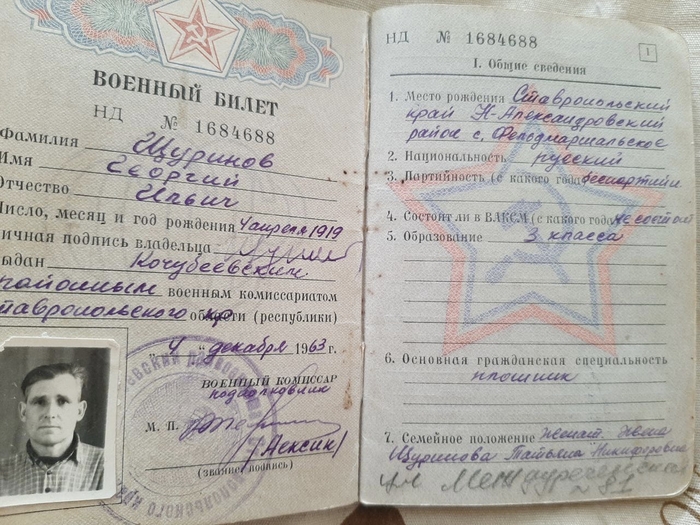 ВОЕННЫЙ БИЛЕТ
НД № 1684688
Фамилия Щуринов
Имя Георгий
Отчество Ильич
Число, месяц и год рождения 4 апреля 1919
личная подпись владельца
выдан Кочубеевским
районным военным комиссариатом
Ставропольского кр области (республики)
"4" декабря 1963 г.
ВОЕННЫЙ КОМИССАР
подполковник
М. П.
(звание, подпись)
НД № 1684688
1
I. Общие сведения
1. Место рождения Ставропольский
край Н-Александровский
район с. Фельдмаршальское
2. Национальность русский
3. Партийность (с какого года) беспартийн
4. Состоит ли в ВЛКСМ (с какого года) не состоял
5. Образование 3 класса
6. Основная гражданская специальность
плотник
7. Семейное положение женат. жена
Щуринова Татьяна Никифоровна
№ 81